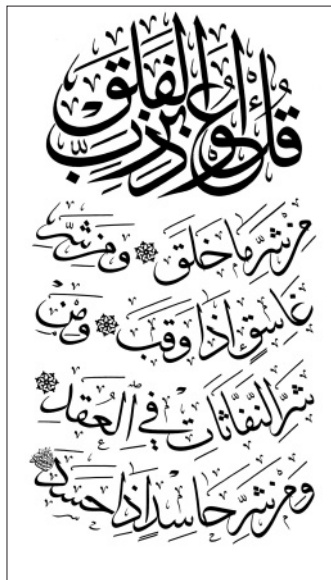 قُلْ أَعُوذُ بِرَبِّ الْفَلَقِ
مِنْ شَرِّ مَا خَلَقَ ۞ وَمِنْ شَرِّ
غَاسِقٍ إِذَا وَقَبَ ۞ وَمِنْ
شَرِّ النَّفَّاثَاتِ فِي الْعُقَدِ ۞
وَمِنْ شَرِّ حَاسِدٍ إِذَا حَسَدَ